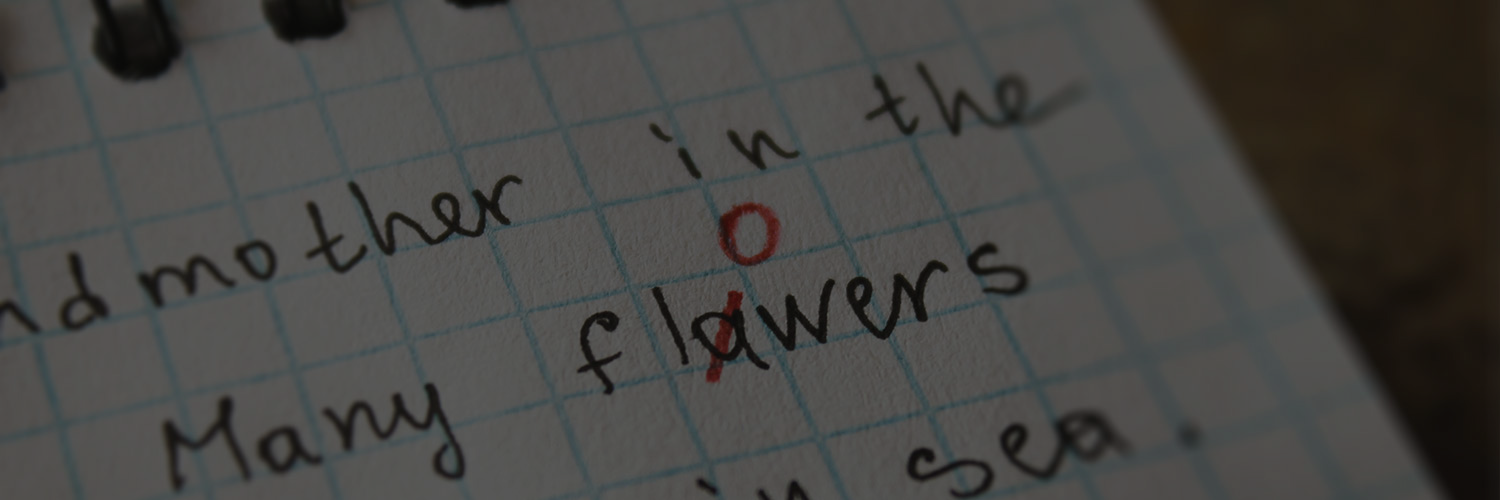 ndmother in the
o
Many flawers
in sea.